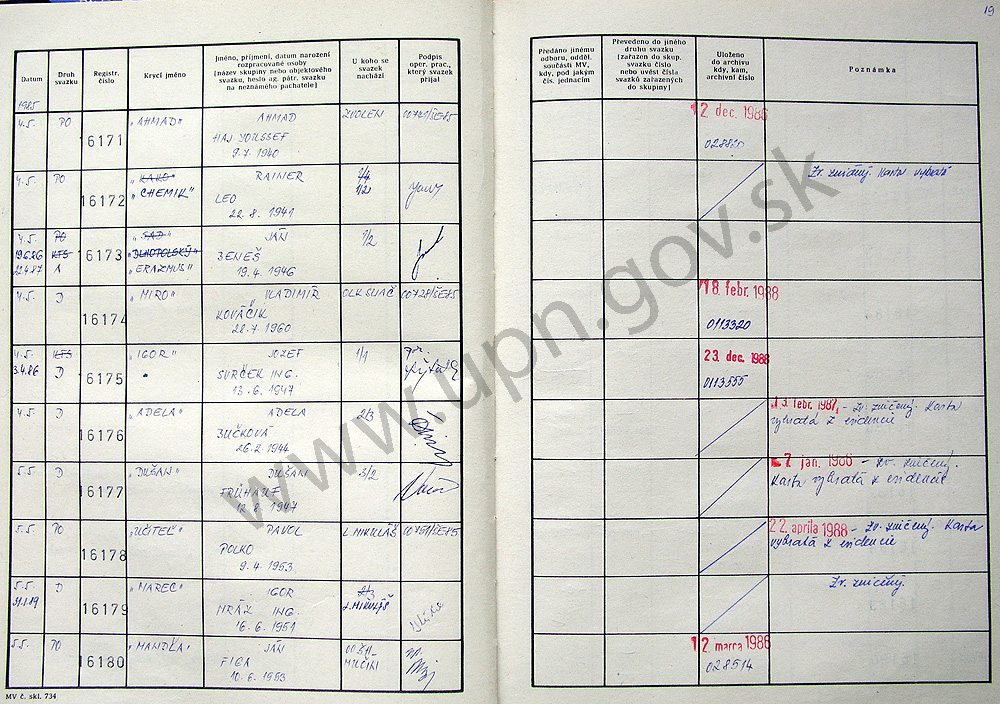 19
Datum
Druh svazku
Registr. číslo
Krycí jméno
Jméno, příjmení, datum narození
rozpracované osoby
[název skupiny nebo objektového
svazku, heslo ag. pátr. svazku
na neznámého pachatele]
U koho se
svazek
nachází
Podpis
oper. prac.,
který svazek
přijal
Předáno jinému
odboru, odděl.
součásti MV,
kdy, pod jakým
čís. jednacím
Převedeno do jiného
druhu svazku
(zařazen do skup.
svazku číslo
nebo uvést čísla
svazků zařazených
do skupiny]
Uloženo
do archivu
kdy, kam,
archivní číslo
Poznámka
1985
4.5. PO 16171 "AHMAD" AHMAD ZVOLEN
HAJ YOUSSEF
9.7. 1940
12. dec. 1986
028820
4.5. PO 16172 "KAKO" RAINER 2/4
"CHEMIK" LEO 1/2
22. 8. 1941
Zv. zničený. Karta vybratá
4.5. PO 16173 "SAD" JÁN 1/2
19.6.86 KTS "DLHOPOLSKÝ" BENEŠ
22.4.87 A "ERAZMUS" 19. 4. 1946
4.5. D 16174 "MIRO" VLADIMÍR OLK SLIAČ
KOVÁČIK
28.7. 1960
18. febr. 1988
0113320
4.5. KTS 16175 "IGOR" JOZEF 1/1
3.4.86 D SVRČEK ING.
13. 6. 1947
23. dec. 1988
0113555
4.5. D 16176 "ADELA" ADELA 2/3
BUČKOVÁ
26.2. 1944
13. febr. 1987 - Zv. zničený. Karta
vybratá z evidencie
5.5. D 16177 "DUŠAN" DUŠAN 3/2
FRÜHAUF
12. 8. 1947
7. jan. 1986 - Zv. zničený.
Karta vybratá z evidencie
5.5. PO 16178 "UČITEĽ" PAVOL L. MIKULÁŠ
POLKO
9. 4. 1953
22. apríla 1988 - Zv. zničený. Karta
vybratá z evidencie
5.5. D 16179 "MAREC" IGOR 2/3
31.1.89 MRÁZ ING. L. MIKULÁŠ
16. 6. 1951
Zv. zničený.
5.5. PO 16180 "MANDĽA" JÁN
FIGA
10. 6. 1953
12. marca 1986
028514
MV č. skl. 734
www.upn.gov.sk